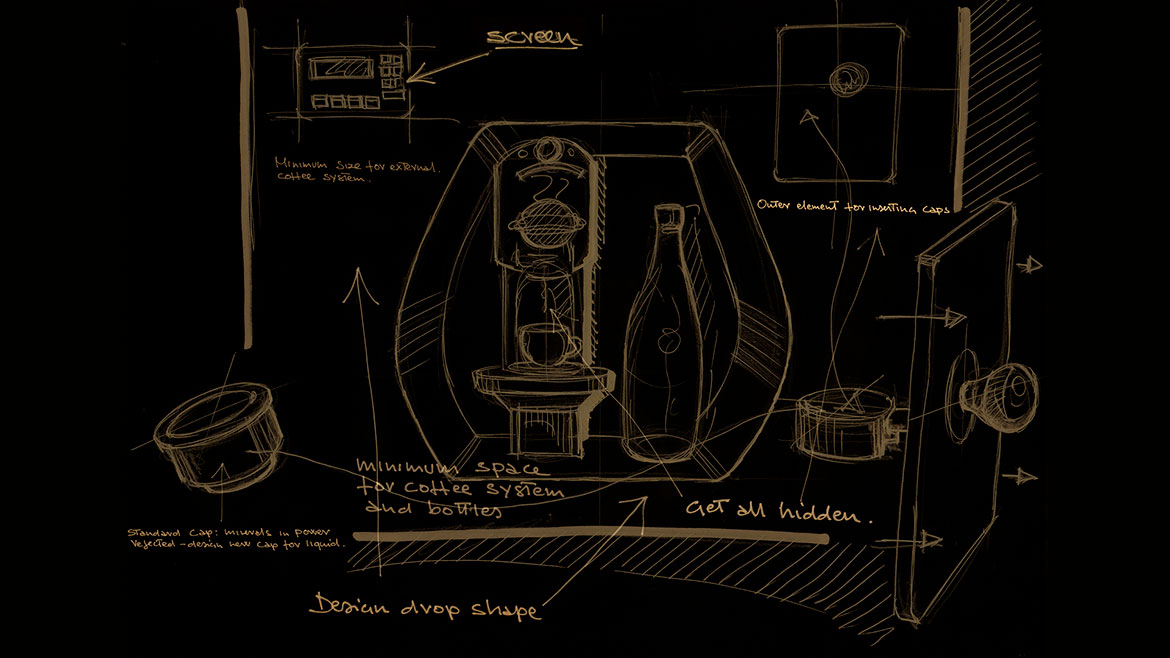 screen
Minimum size for external
coffee system.
Outer element for inserting caps
minimum space
for coffee system
and bottles
Get all hidden.
Standard cap: minerals in power
rejected - design new cap for liquid.
Design drop shape